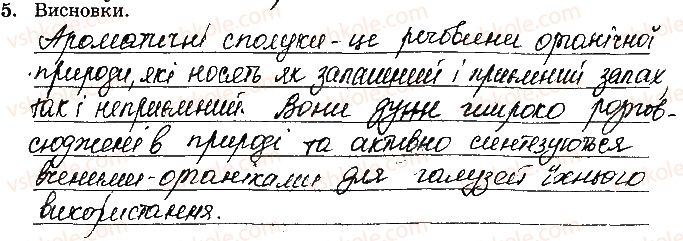 5. Висновки.
Ароматичні сполуки - це речовини органічної
природи, які носять як запашний і приємний запах,
так і неприємний. Вони дуже широко розпов-
сюджені в природі та активно синтезуються
вченими-органіками для галузей їхнього
використання.